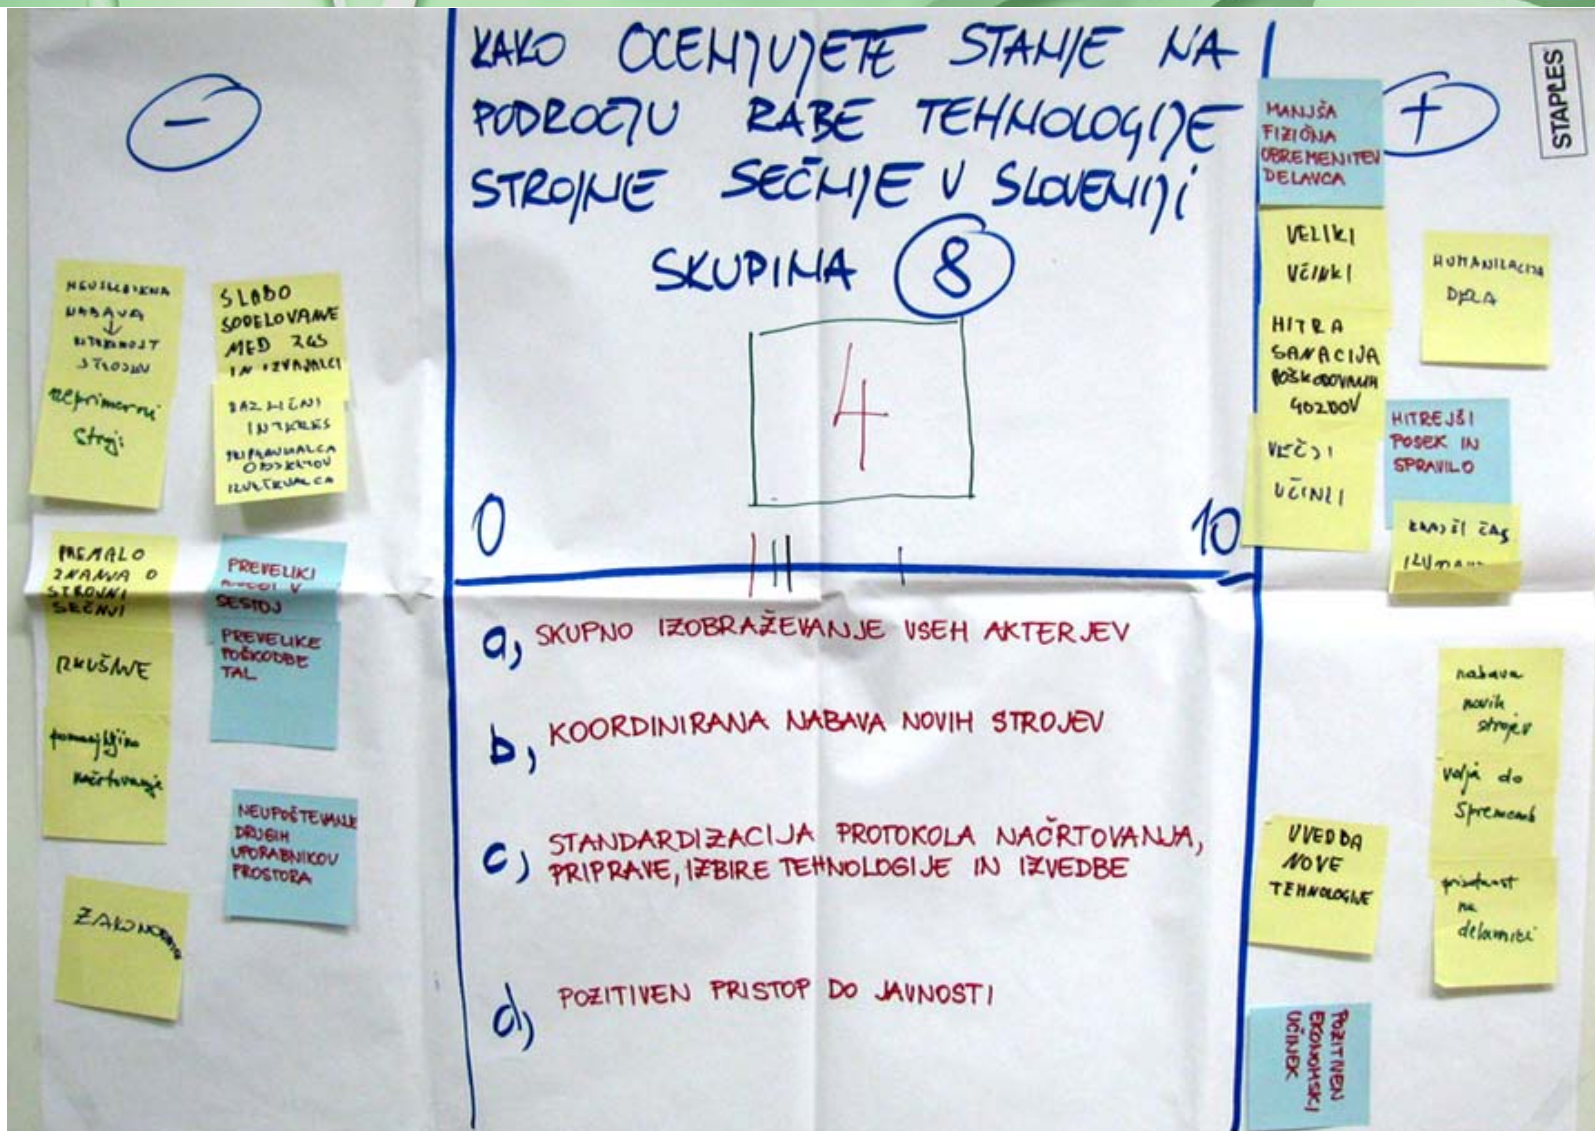 KAKO OCENJUJETE STANJE NA
PODROČJU RABE TEHNOLOGIJE
STROJNE SEČNJE V SLOVENIJI
SKUPINA 8
4
0
10
a, SKUPNO IZOBRAŽEVANJE VSEH AKTERJEV
b, KOORDINIRANA NABAVA NOVIH STROJEV
c, STANDARDIZACIJA PROTOKOLA NAČRTOVANJA,
PRIPRAVE, IZBIRE TEHNOLOGIJE IN IZVEDBE
d, POZITIVEN PRISTOP DO JAVNOSTI
-
NABAVA
STROJEV
neprimerni
stroji
SLABO
SODELOVANJE
MED ZGS
IN IZVAJALCI
RAZLIČNI
INTERES
PREMALO
ZNANJA O
STROJNI
SEČNJI
IZKUŠNJE
pomanjkljivo
načrtovanje
PREVELIKI
V
SESTOJ
PREVELIKE
POŠKODBE
TAL
NEUPOŠTEVANJE
DRUGIH
UPORABNIKOV
PROSTORA
ZAKONODAJA
+
STAPLES
MANJŠA
FIZIČNA
OBREMENITEV
DELAVCA
VELIKI
UČINKI
HITRA
SANACIJA
POŠKODOVANIH
GOZDOV
VEČJI
UČINKI
HUMANIZACIJA
DELA
HITREJŠI
POSEK IN
SPRAVILO
KRAJŠI ČAS
nabava
novih
strojev
volja do
sprememb
prisotnost
na
delavnici
UVEDBA
NOVE
TEHNOLOGIJE
POZITIVEN
EKONOMSKI
UČINEK